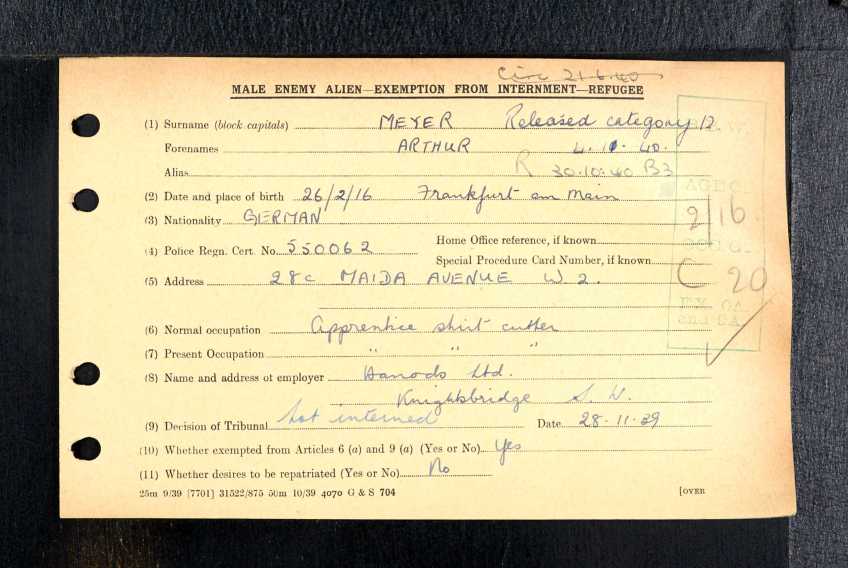 Circ 21.6.40
MALE ENEMY ALIEN—EXEMPTION FROM INTERNMENT—REFUGEE
(1) Surname (block capitals) MEYER Released category 12
Forenames ARTHUR 4.11.40.
Alias R 30.10.40 B3
(2) Date and place of birth 26/2/16 Frankfurt am Main
2/16
(3) Nationality GERMAN
(4) Police Regn. Cert. No. 550062 Home Office reference, if known
Special Procedure Card Number, if known
(5) Address 28c MAIDA AVENUE W 2.
C 20
(6) Normal occupation Apprentice shirt cutter
(7) Present Occupation " " "
(8) Name and address of employer Harrods Ltd.
Knightsbridge S. W.
(9) Decision of Tribunal Not interned Date 28-11-39
(10) Whether exempted from Articles 6 (a) and 9 (a) (Yes or No) Yes
(11) Whether desires to be repatriated (Yes or No) No
25m 9/39 [7701] 31522/875 50m 10/39 4070 G & S 704 [OVER